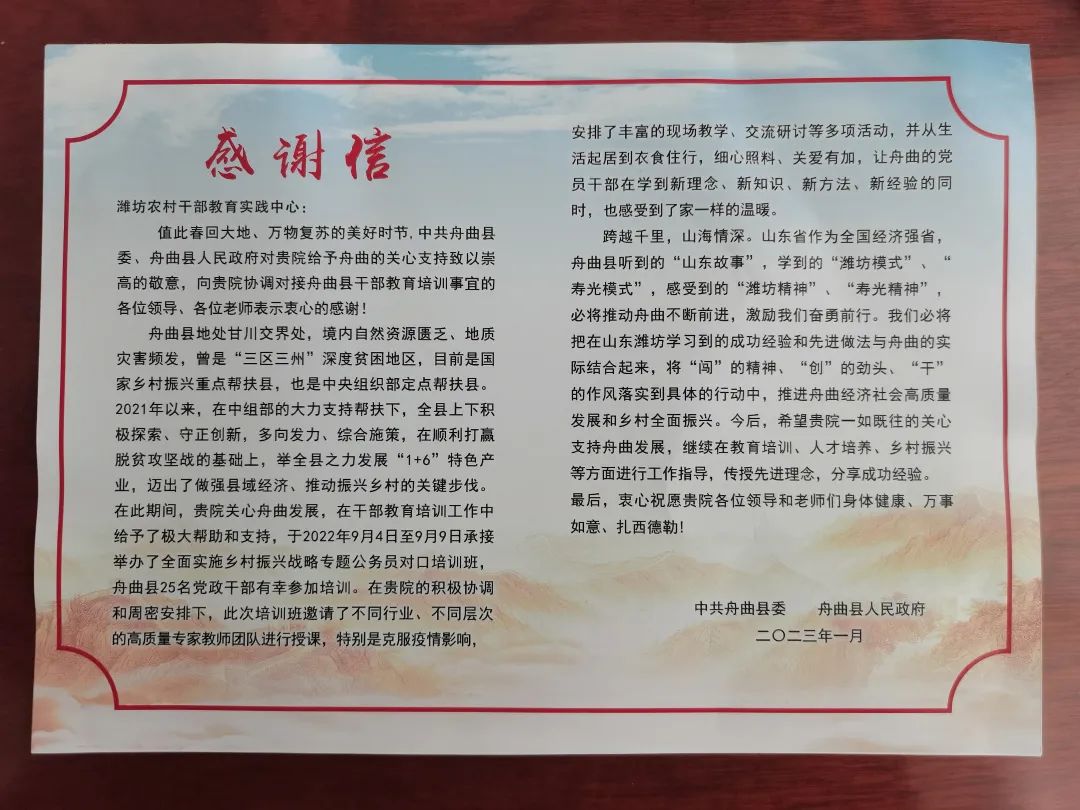 感谢信
潍坊农村干部教育实践中心：
值此春回大地、万物复苏的美好时节,中共舟曲县
委、舟曲县人民政府对贵院给予舟曲的关心支持致以崇
高的敬意，向贵院协调对接舟曲县干部教育培训事宜的
各位领导、各位老师表示衷心的感谢！
舟曲县地处甘川交界处，境内自然资源匮乏、地质
灾害频发，曾是“三区三州”深度贫困地区，目前是国
家乡村振兴重点帮扶县，也是中央组织部定点帮扶县。
2021年以来，在中组部的大力支持帮扶下，全县上下积
极探索、守正创新，多向发力、综合施策，在顺利打赢
脱贫攻坚战的基础上，举全县之力发展“1+6”特色产
业，迈出了做强县域经济、推动振兴乡村的关键步伐。
在此期间，贵院关心舟曲发展，在干部教育培训工作中
给予了极大帮助和支持，于2022年9月4日至9月9日承接
举办了全面实施乡村振兴战略专题公务员对口培训班，
舟曲县25名党政干部有幸参加培训。在贵院的积极协调
和周密安排下，此次培训班邀请了不同行业、不同层次
的高质量专家教师团队进行授课，特别是克服疫情影响，
安排了丰富的现场教学、交流研讨等多项活动，并从生
活起居到衣食住行，细心照料、关爱有加，让舟曲的党
员干部在学到新理念、新知识、新方法、新经验的同
时，也感受到了家一样的温暖。
跨越千里，山海情深。山东省作为全国经济强省，
舟曲县听到的“山东故事”，学到的“潍坊模式”、“
寿光模式”，感受到的“潍坊精神”、“寿光精神”，
必将推动舟曲不断前进，激励我们奋勇前行。我们必将
把在山东潍坊学习到的成功经验和先进做法与舟曲的实
际结合起来，将“闯”的精神、“创”的劲头、“干”
的作风落实到具体的行动中，推进舟曲经济社会高质量
发展和乡村全面振兴。今后，希望贵院一如既往的关心
支持舟曲发展，继续在教育培训、人才培养、乡村振兴
等方面进行工作指导，传授先进理念，分享成功经验。
最后，衷心祝愿贵院各位领导和老师们身体健康、万事
如意、扎西德勒！
中共舟曲县委 舟曲县人民政府
二〇二三年一月